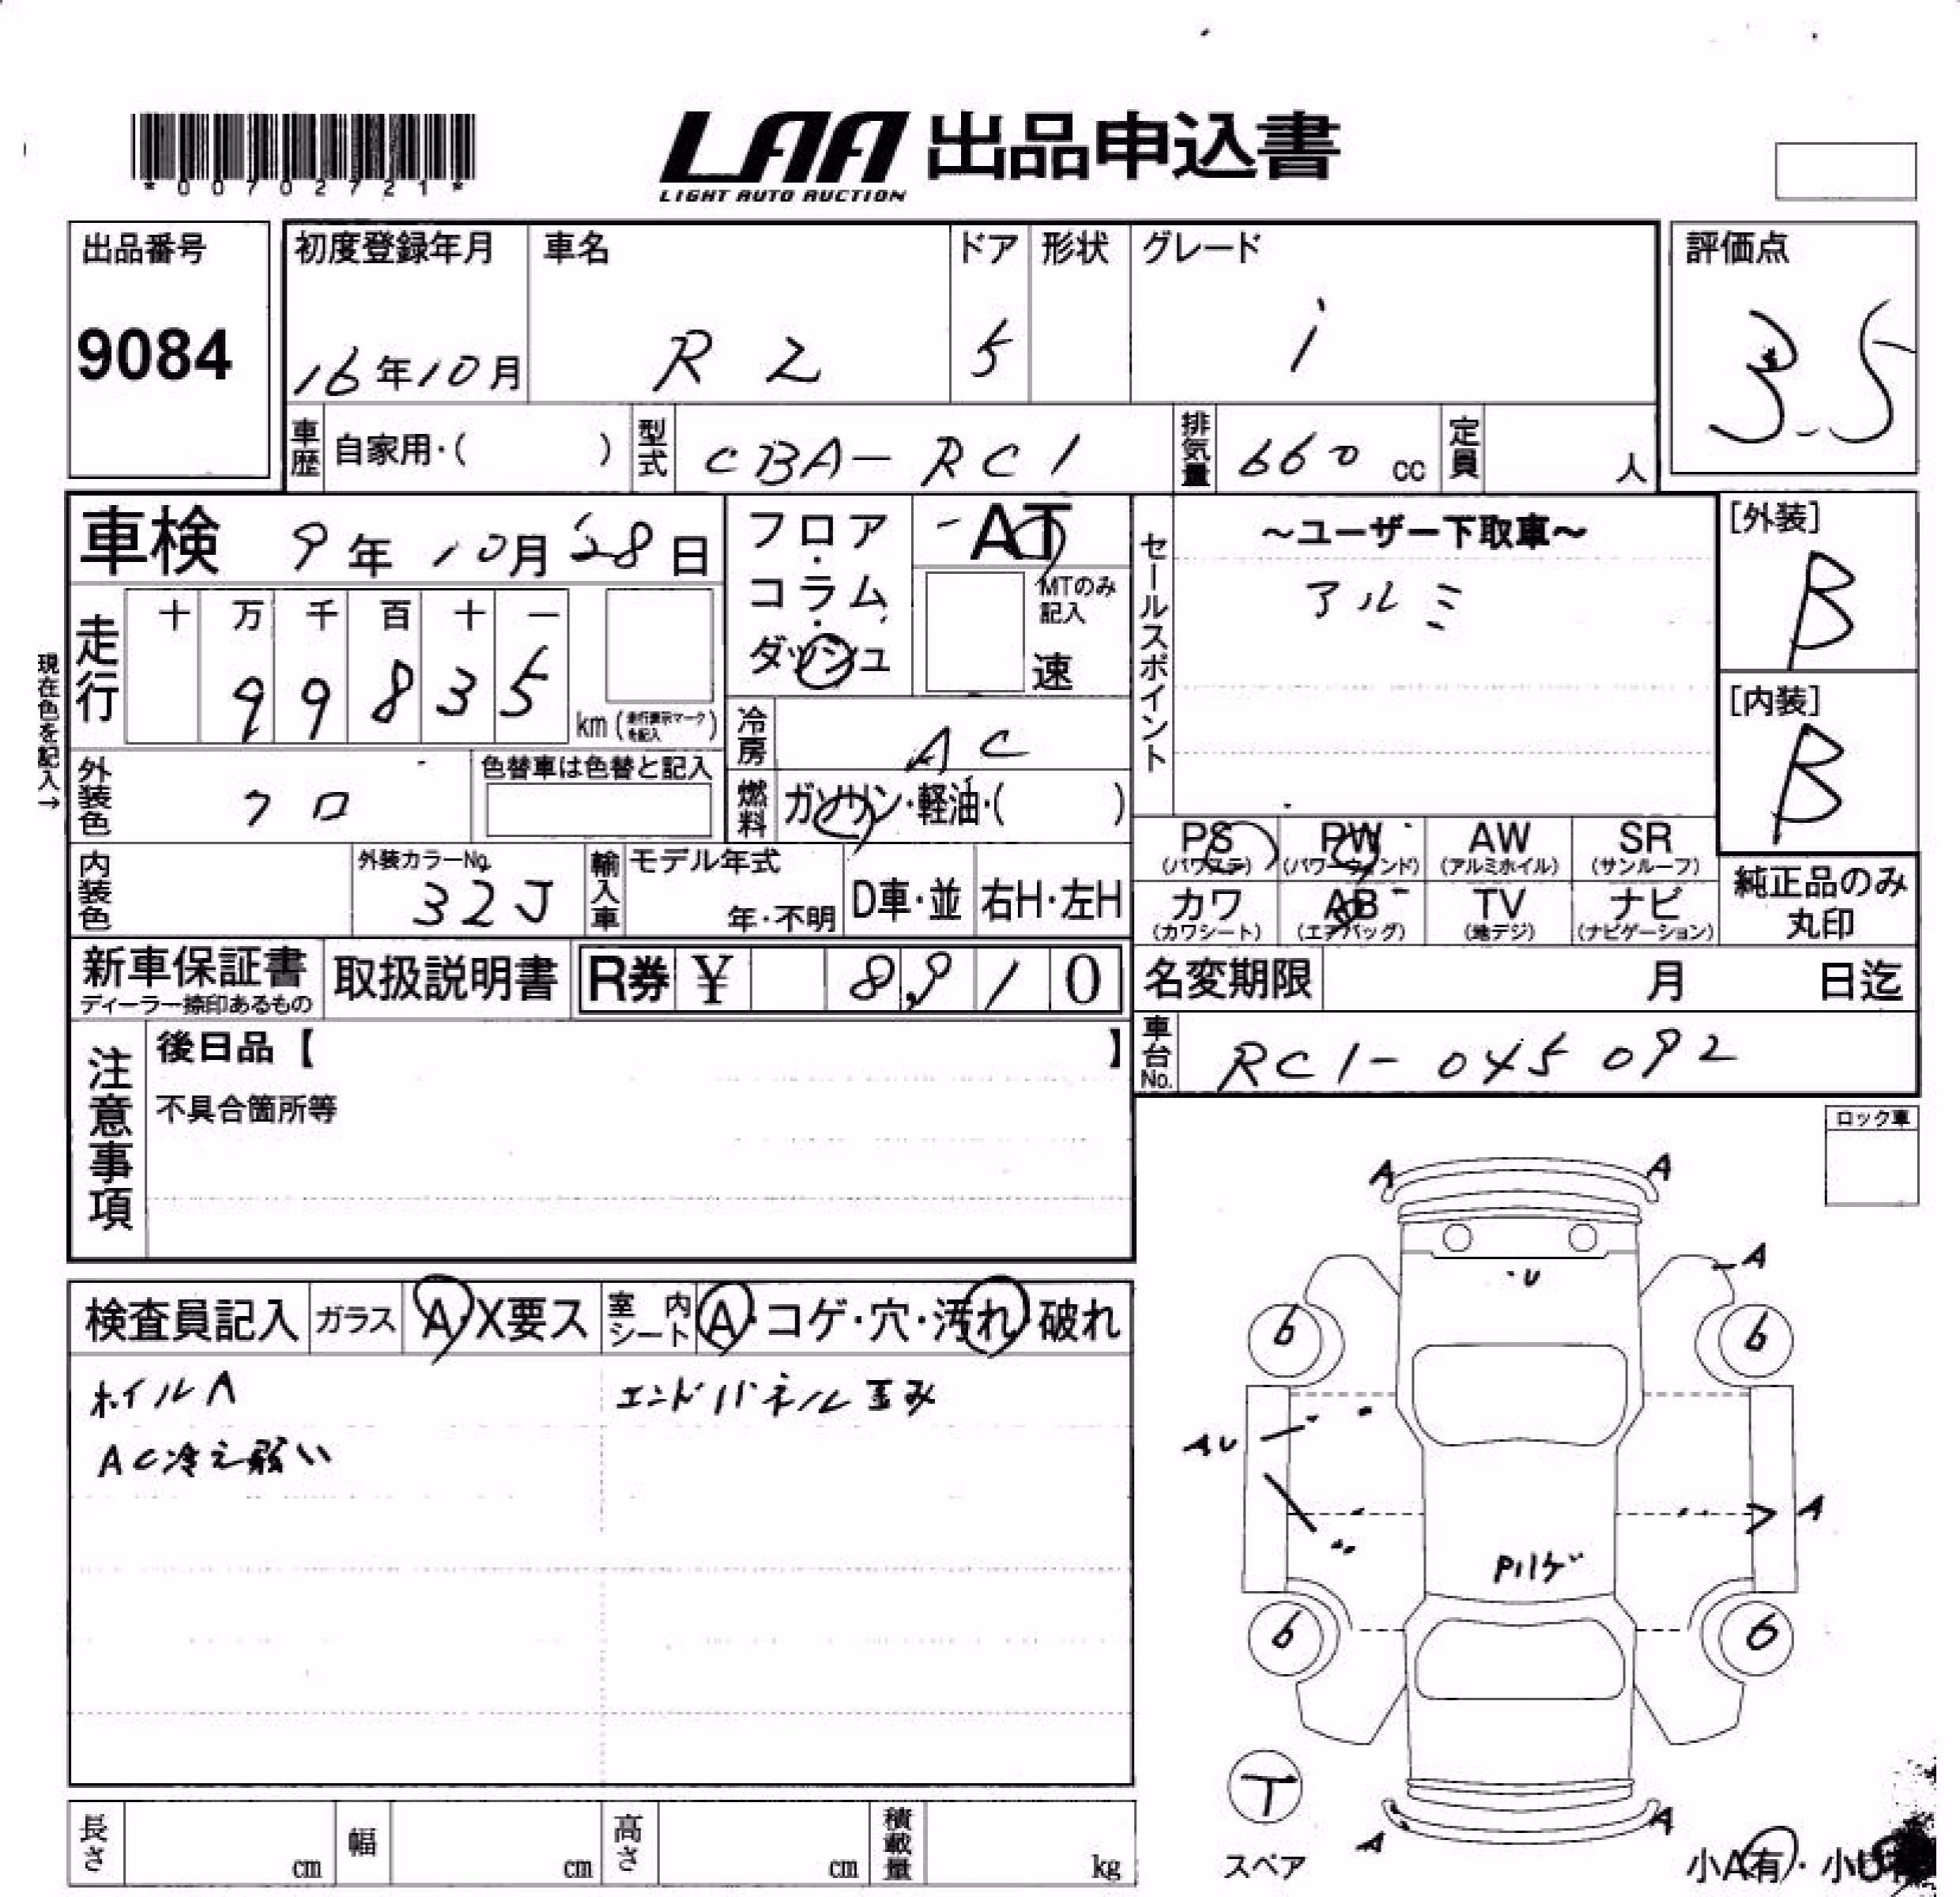 *00702721*
LAA 出品申込書
LIGHT AUTO AUCTION
出品番号
9084
初度登録年月
16年10月
車名
R2
ドア
5
形状
グレード
i
評価点
3.5
車歴 自家用・( )
型式 CBA-RC1
排気量 660 cc
定員 人
車検 9年10月28日
フロア・コラム・ダッシュ
AT
MTのみ記入
速
セールスポイント
～ユーザー下取車～
アルミ
[外装]
B
[内装]
B
現在色を記入→
走行
十 万 千 百 十 一
9 9 8 3 5
km (走行表示マークを記入)
冷房 AC
燃料 ガソリン・軽油・( )
外装色 クロ
色替車は色替と記入
内装色
外装カラーNo.
32J
輸入車
モデル年式
年・不明
D車・並
右H・左H
PS (パワステ)
PW (パワーウィンド)
AW (アルミホイル)
SR (サンルーフ)
カワ (カワシート)
AB (エアバッグ)
TV (地デジ)
ナビ (ナビゲーション)
純正品のみ
丸印
新車保証書
ディーラー捺印あるもの
取扱説明書
R券 ¥ 8,910
名変期限 月 日迄
車台No. RC1-045092
注意事項
後日品【 】
不具合箇所等
ロック車
検査員記入
ガラス A・X要ス
室内シート A・コゲ・穴・汚れ・破れ
ホイルA
エンドパネル歪み
AC冷え弱い
A A
A
U
6 6
AU
A
Pハゲ
6 6
T
スペア
A A
小A有・小U
長さ cm
幅 cm
高さ cm
積載量 kg